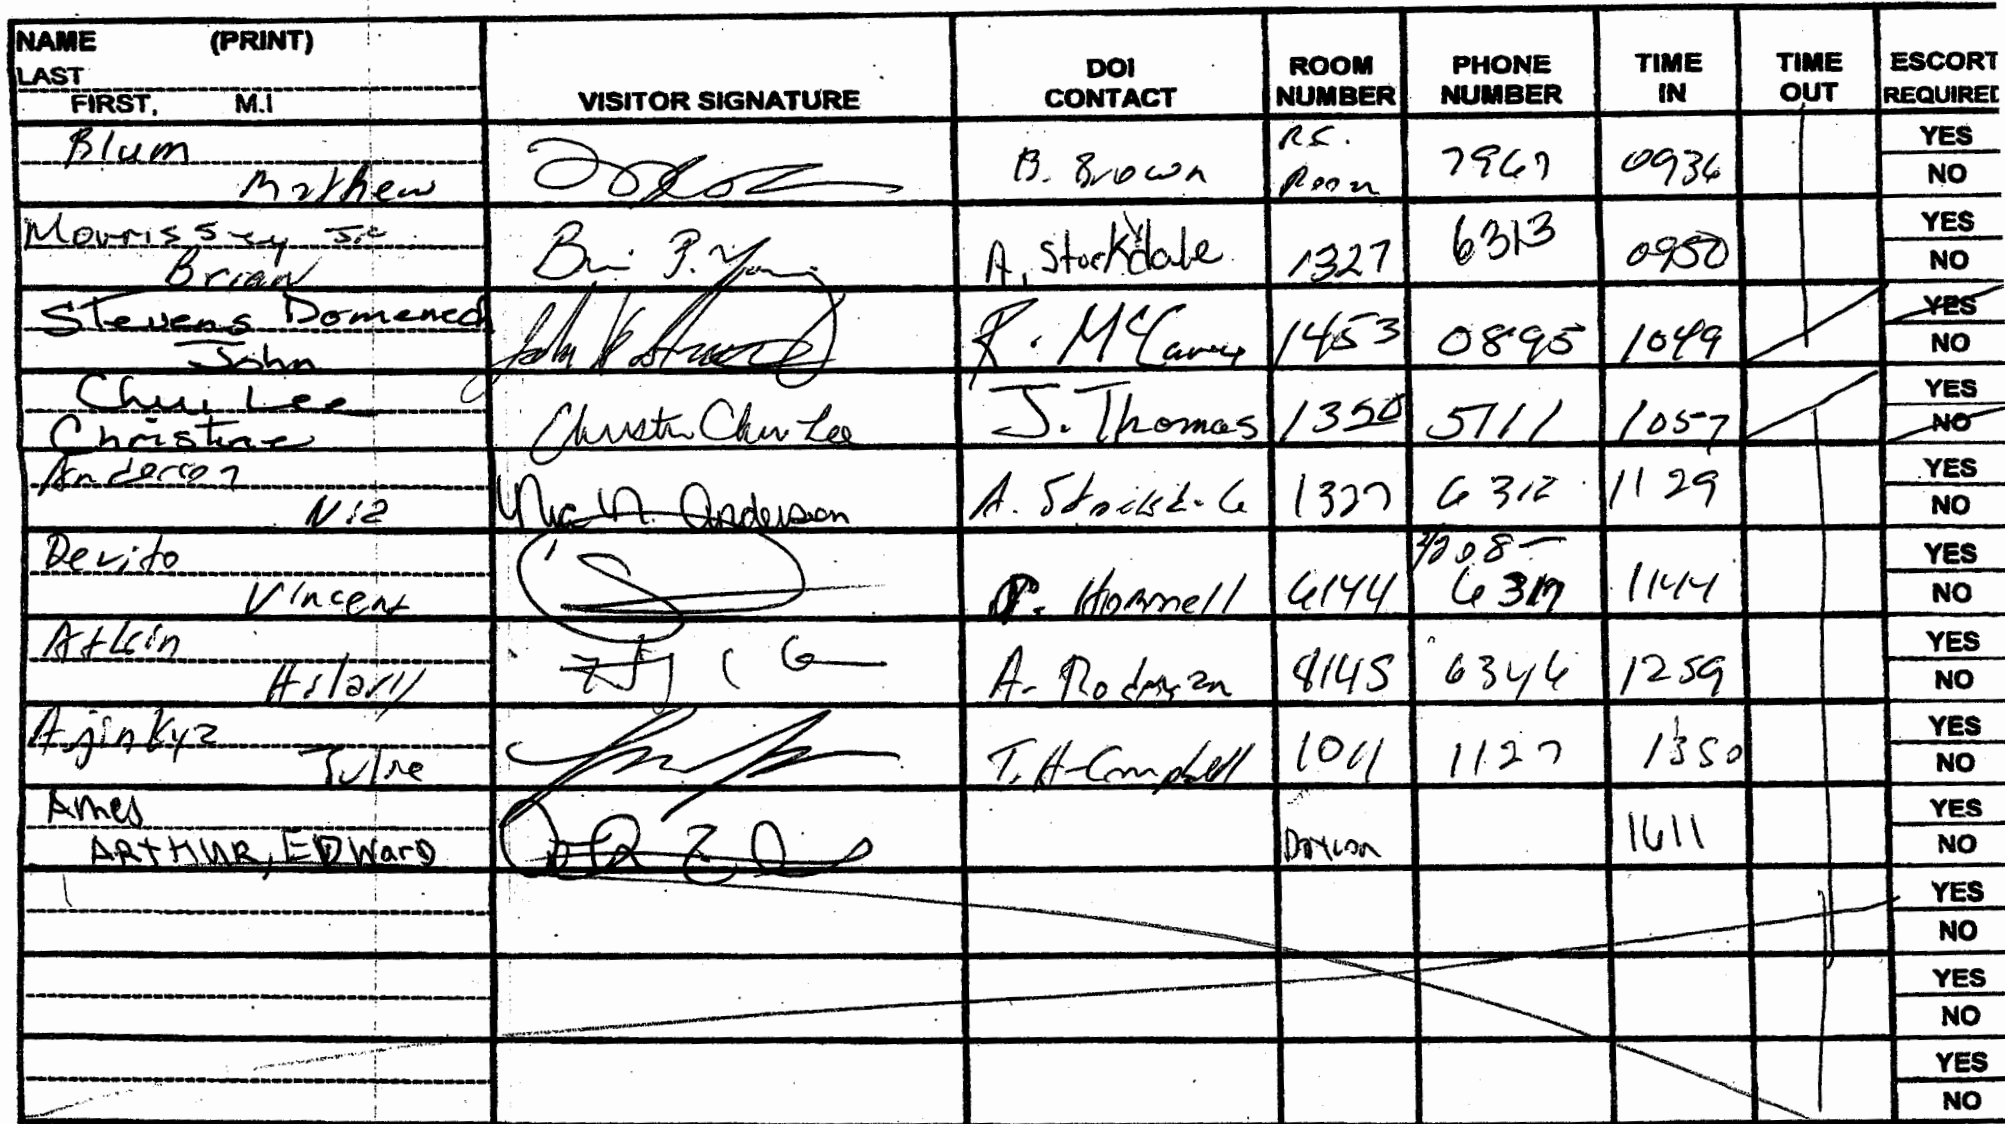 NAME (PRINT)
LAST
FIRST, M.I
VISITOR SIGNATURE
DOI CONTACT
ROOM NUMBER
PHONE NUMBER
TIME IN
TIME OUT
ESCORT REQUIRED
Blum
Mathew
B. Brown
Room
7967
0936
YES
NO
Morrissey Jr.
Brian
A. Stockdale
1327
6313
0950
YES
NO
Stevens Domenech
John
1453
0895
1049
YES
NO
Chui Lee
Christine
Christin Chui Lee
J. Thomas
1350
5711
1057
YES
NO
Anderson
Nia
Anderson
1327
6312
1129
YES
NO
Devito
Vincent
Hommell
6144
1144
YES
NO
Atkin
Hilary
A. Rodman
8145
6346
1259
YES
NO
Ajinkya
T. H-Campbell
1011
1127
1350
YES
NO
Ames
ARTHUR, EDWard
1611
YES
NO
YES
NO
YES
NO
YES
NO